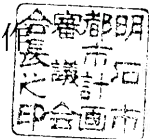 明石市
都市計画
審議会
会長之印
作